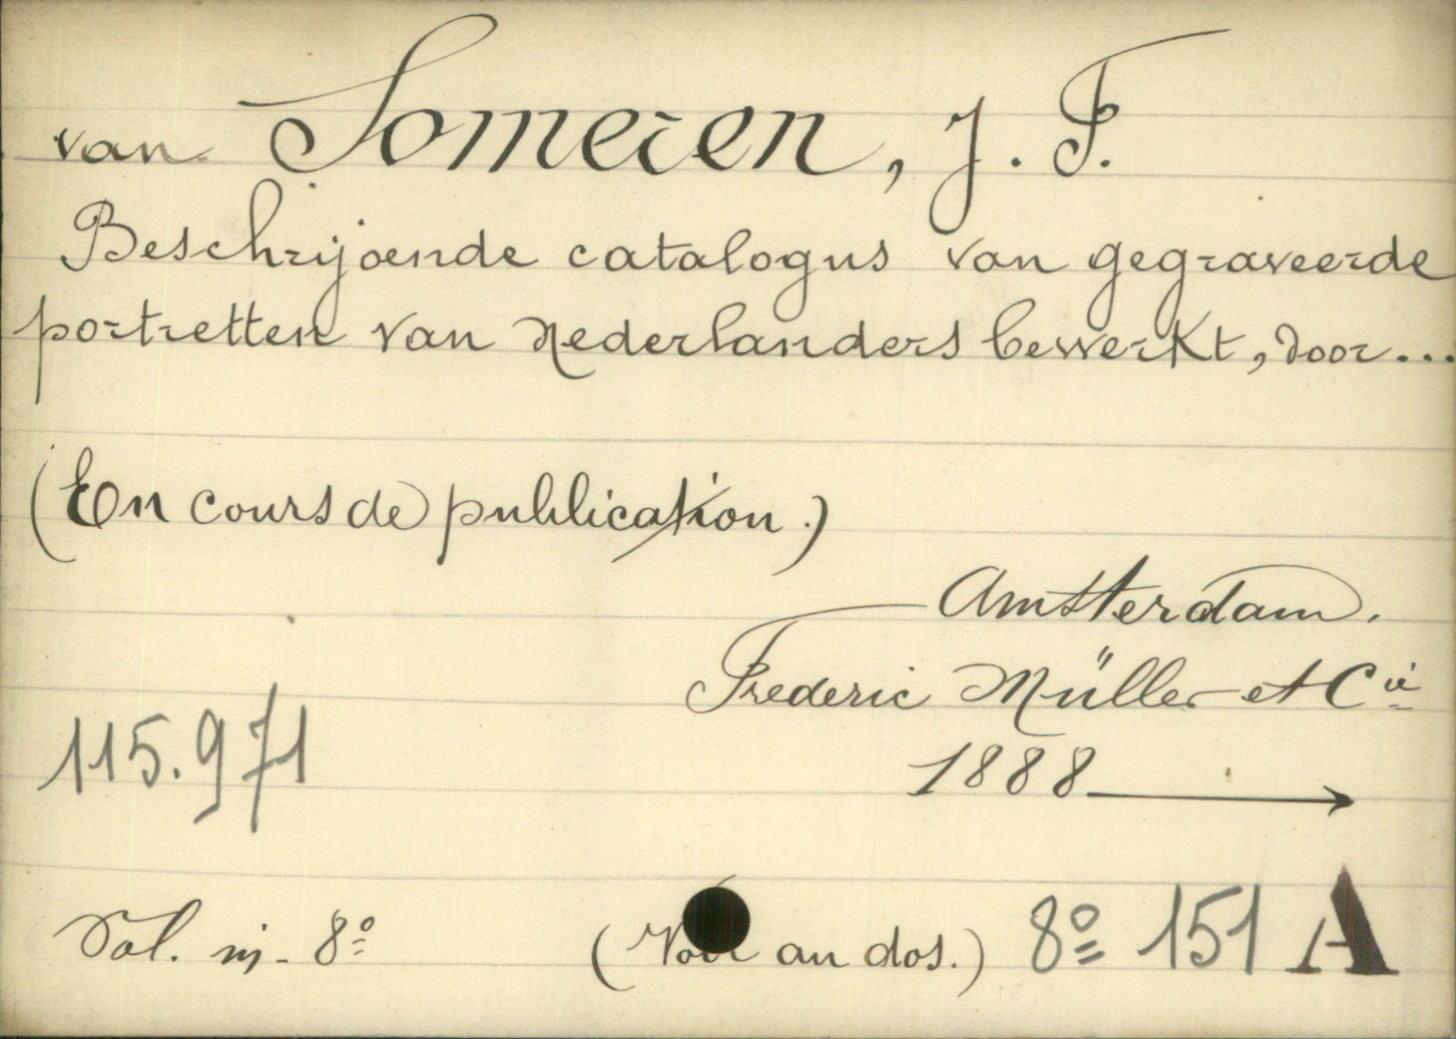 van Someren, J. F.
Beschrijvende catalogus van gegraveerde
portretten van Nederlanders bewerkt, door...
(En cours de publication.)
Amsterdam.
Frederic Müller et Cie
115.971
1888
Vol. in-8º
(Voir au dos.) 8º 151 A